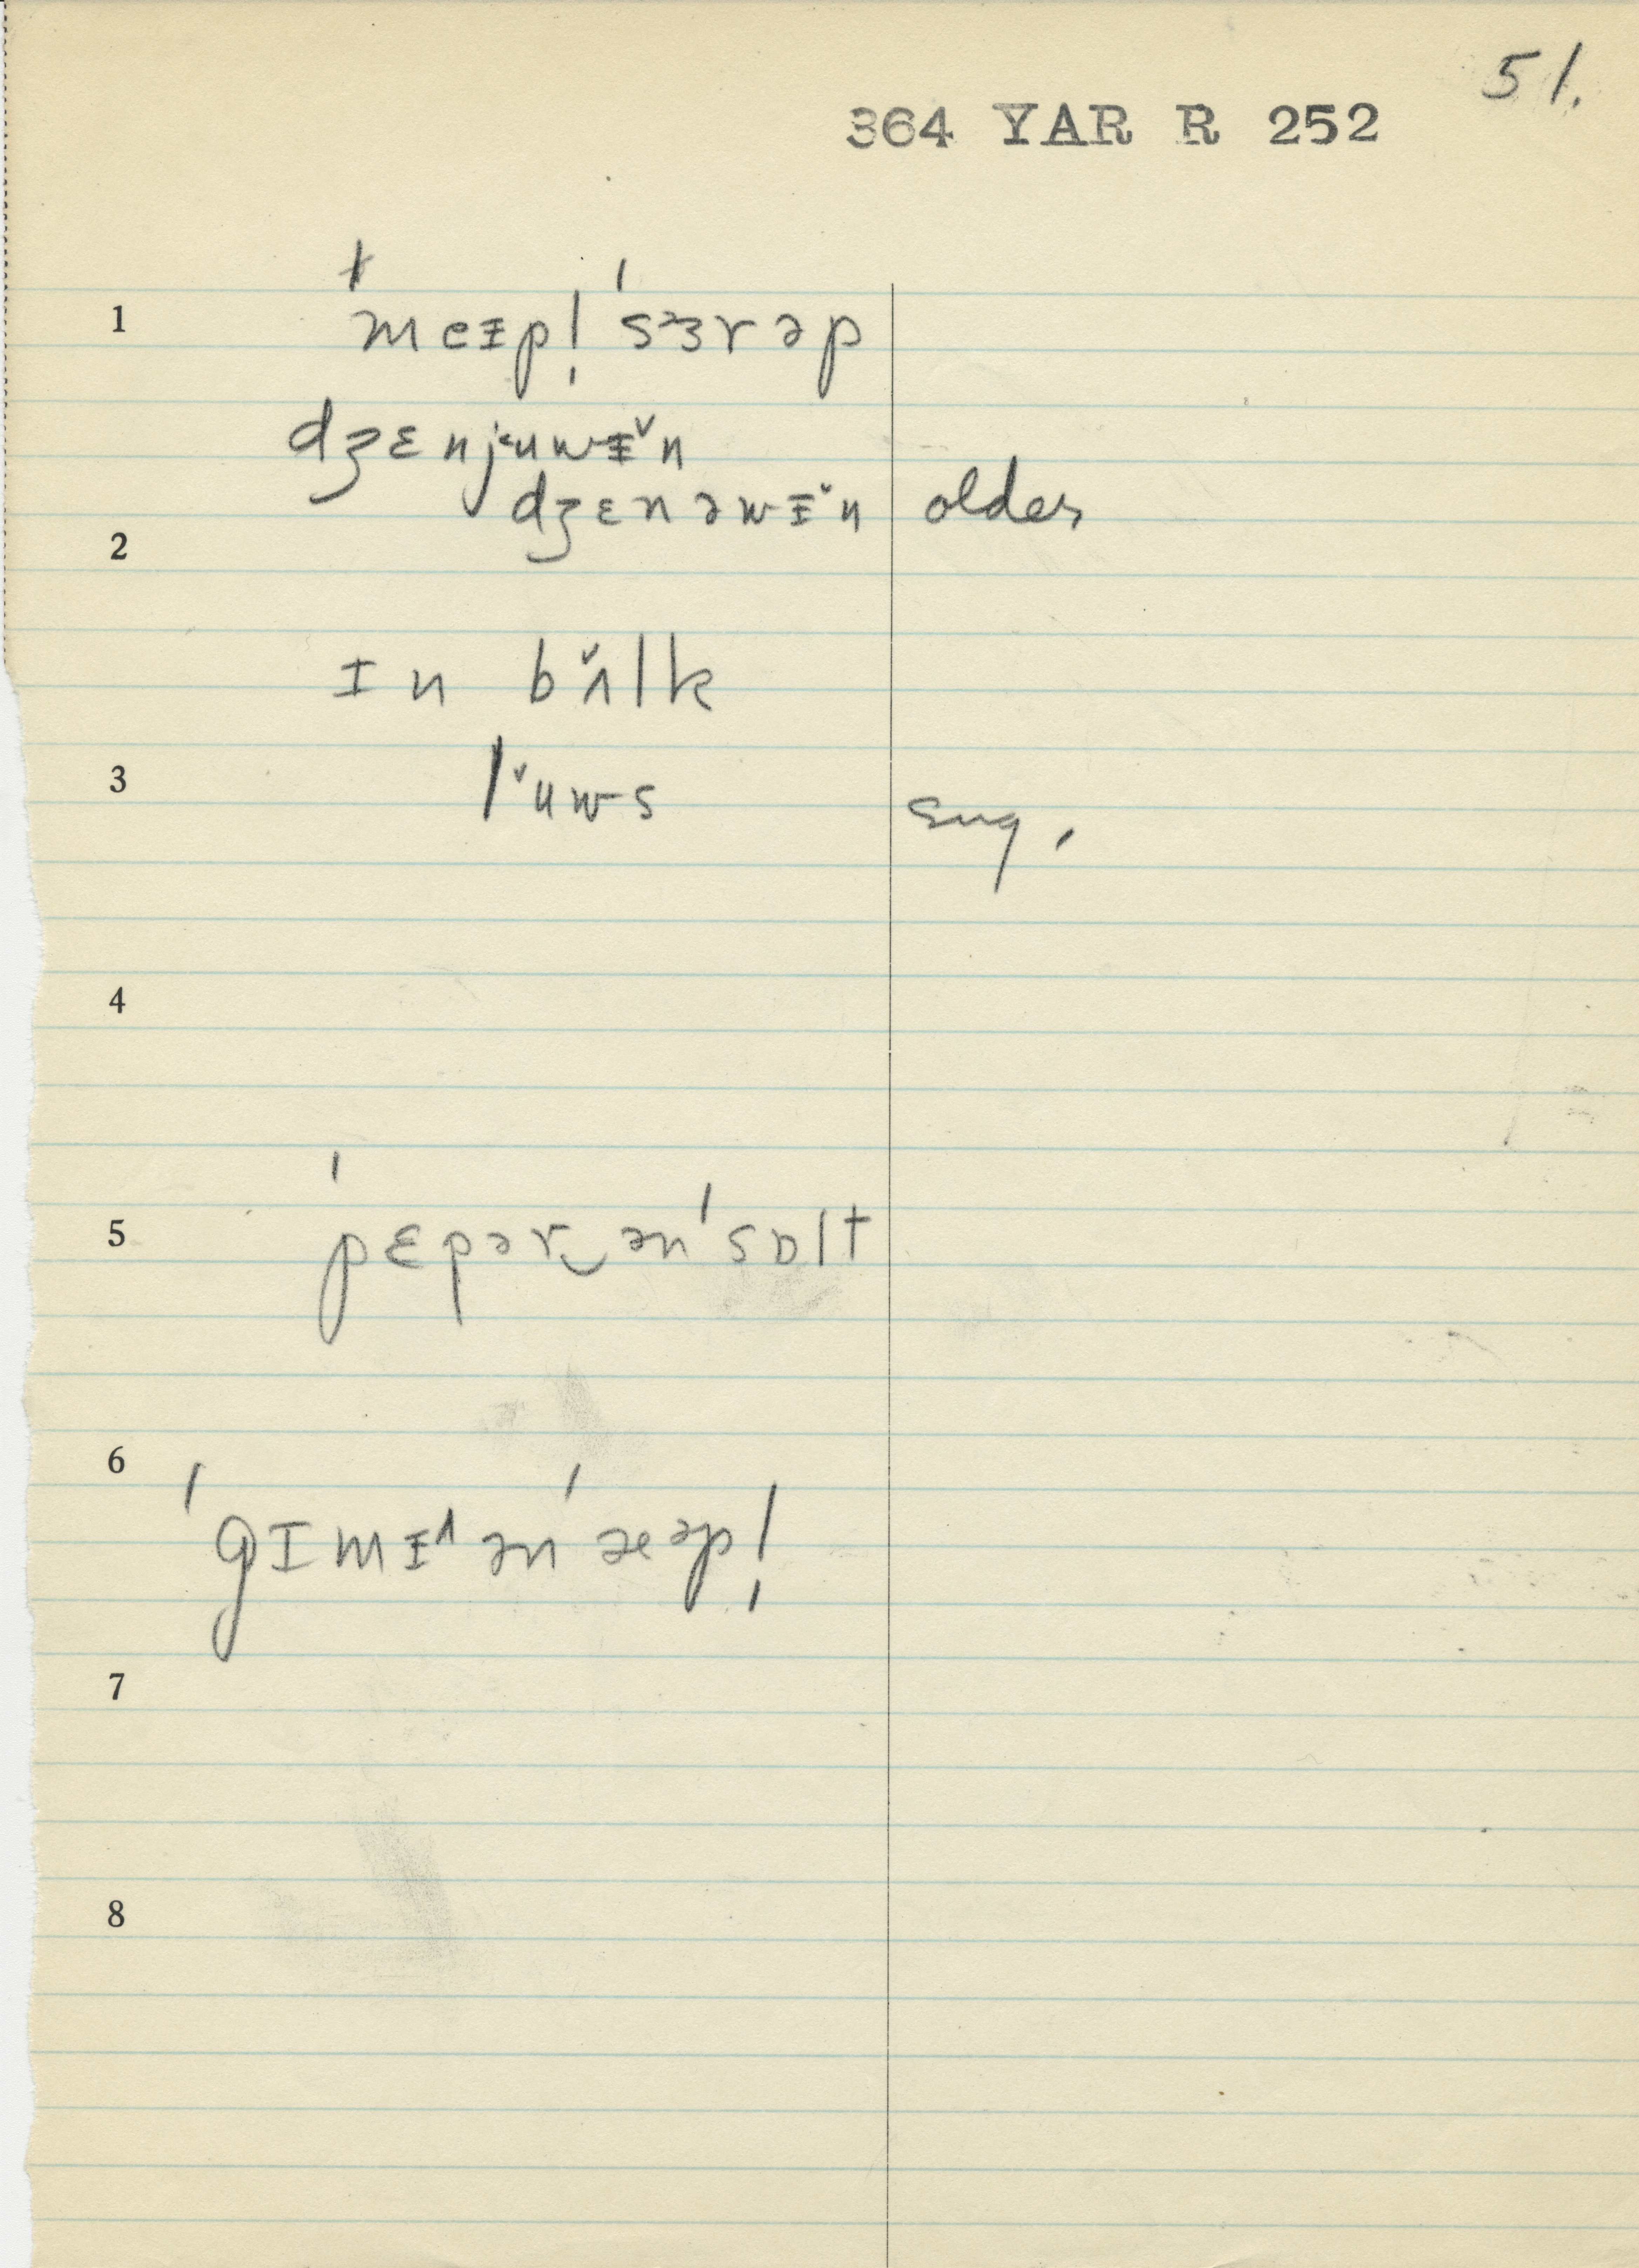 51.
364 YAR R 252
1 ˈmeᵻpḷ ˈsɜrəp
dʒɛnjʉuwᵻ̌n
dʒɛnəwᵻ̌n older
2
ɪn bʌ̌lk
3 lˇuws sug.
4
5 ˈpɛpər‿ən ˈsɒlt
6
ˈgɪmᵻ^ən ˈæəpḷ
7
8